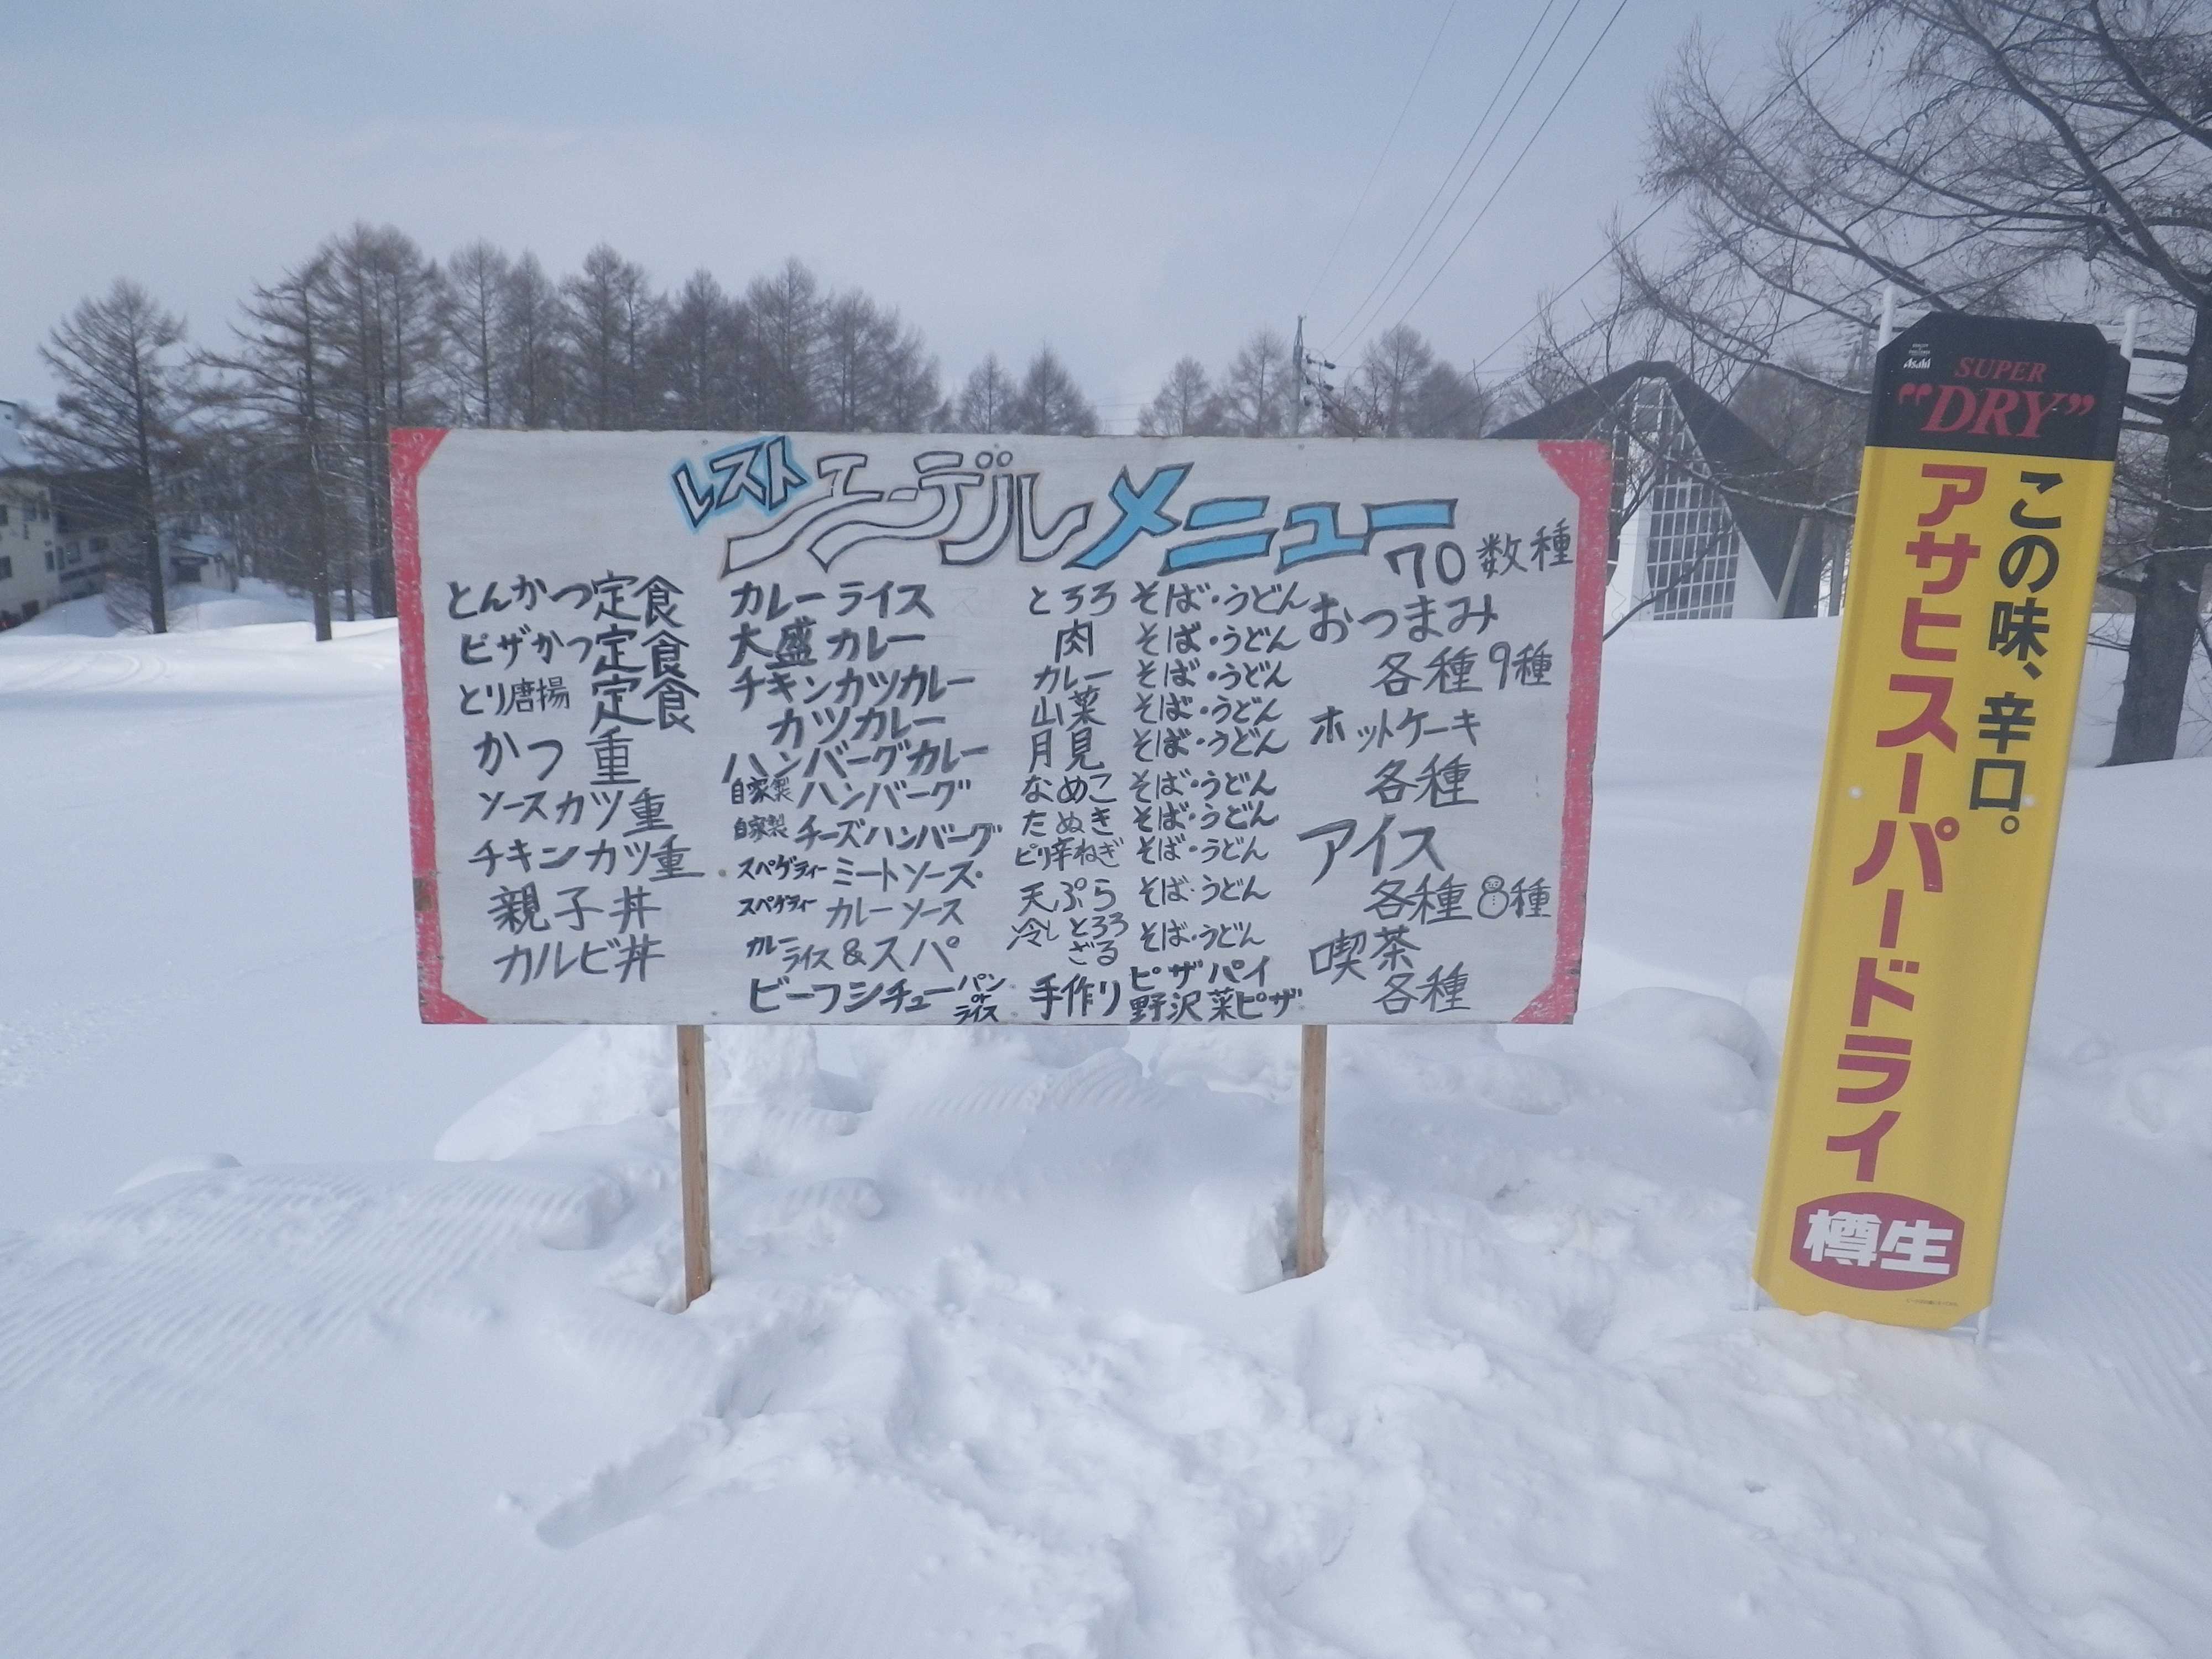 レスト エーデル メニュー
70数種
とんかつ定食
ピザかつ定食
とり唐揚 定食
かつ重
ソースカツ重
チキンカツ重
親子丼
カルビ丼
カレーライス
大盛カレー
チキンカツカレー
カツカレー
ハンバーグカレー
自家製 ハンバーグ
自家製 チーズハンバーグ
スパゲティー ミートソース
スパゲティー カレーソース
カレーライス&スパ
ビーフシチュー パン or ライス
とろろ そば・うどん
肉 そば・うどん
カレー そば・うどん
山菜 そば・うどん
月見 そば・うどん
なめこ そば・うどん
たぬき そば・うどん
ピリ辛ねぎ そば・うどん
天ぷら そば・うどん
冷し とろろ ざる そば・うどん
手作り ピザパイ
野沢菜ピザ
おつまみ
各種9種
ホットケーキ
各種
アイス
各種8種
喫茶
各種
Asahi
SUPER
"DRY"
この味、辛口。
アサヒスーパードライ
樽生